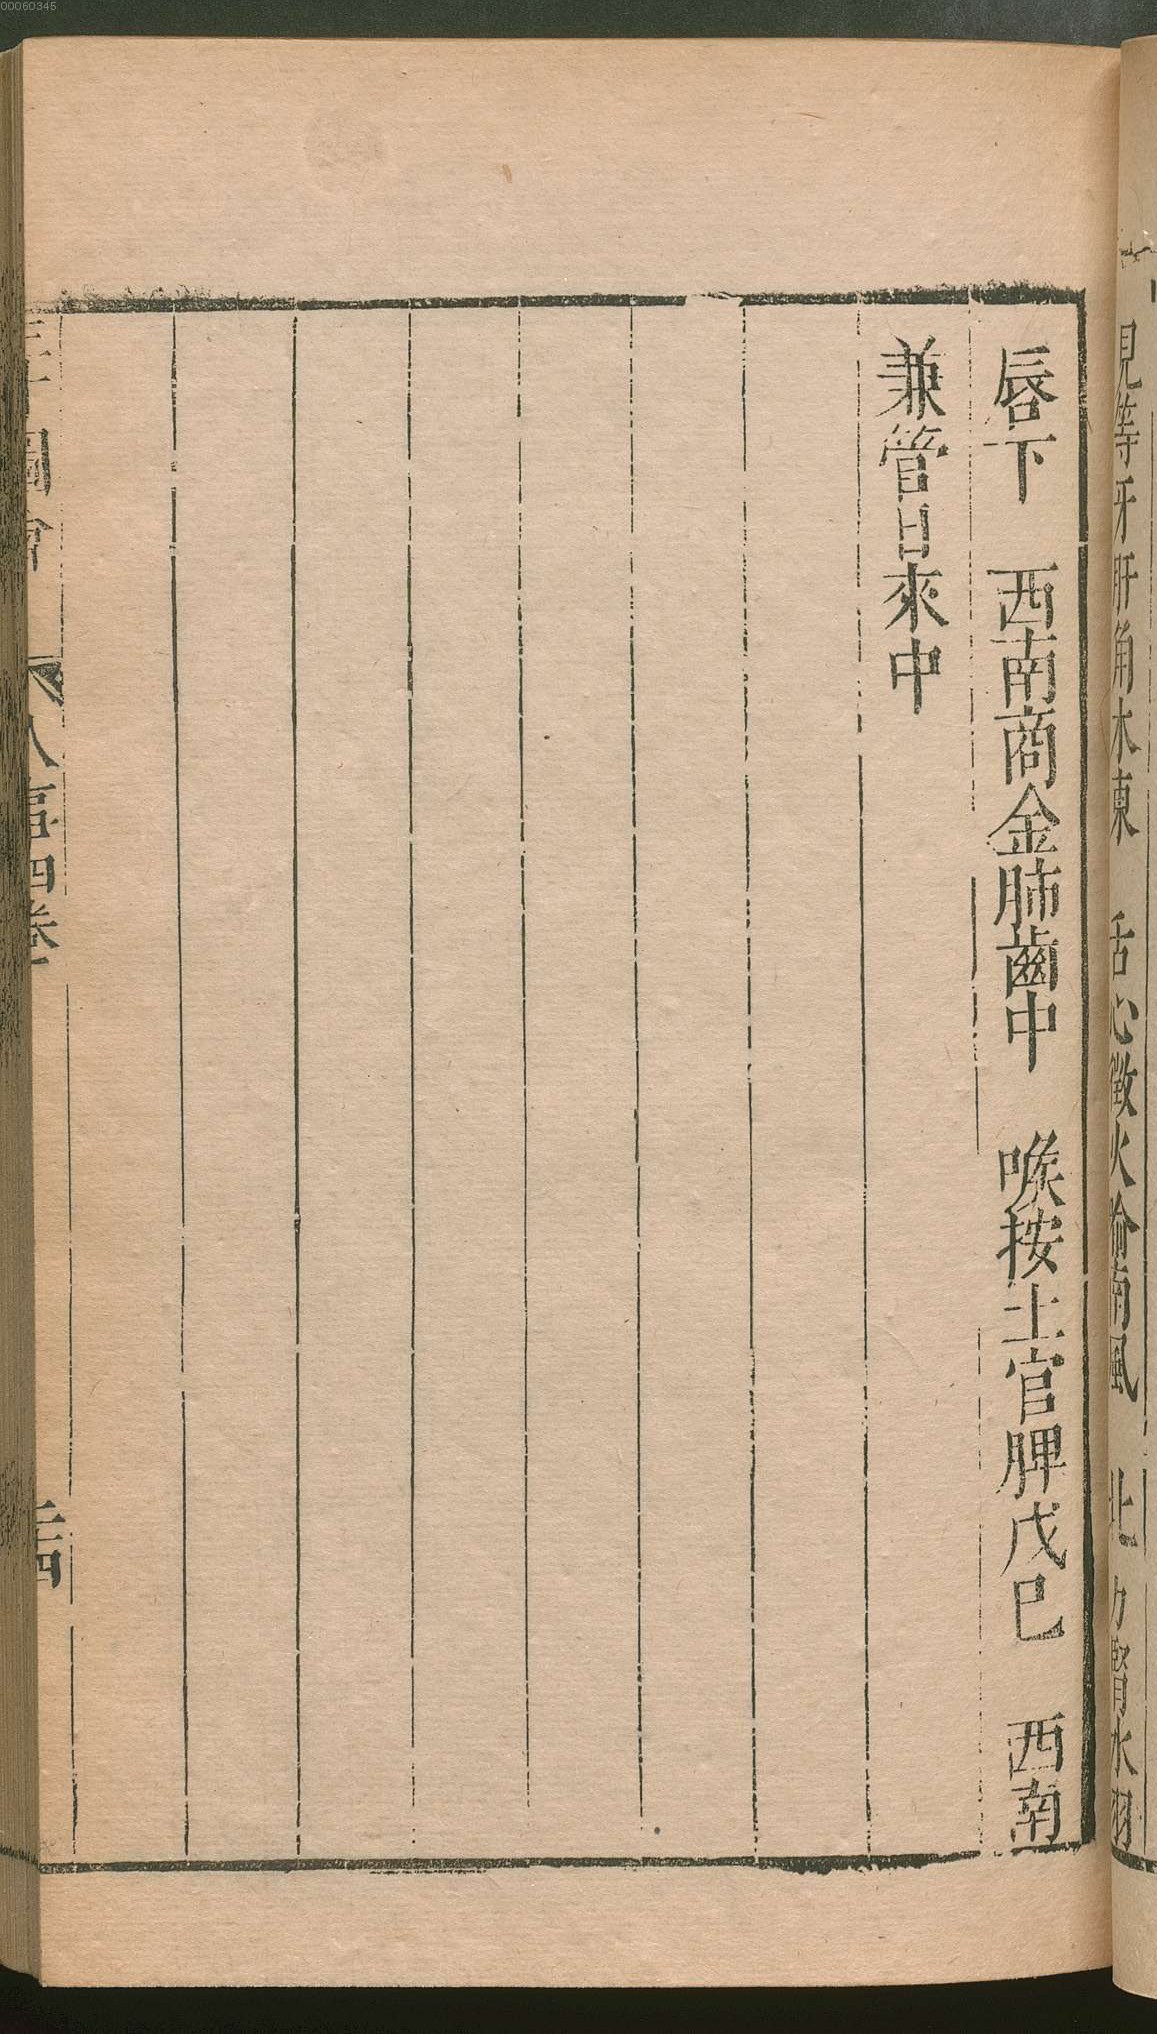 00060345
見等牙肝角木東　舌心徵火喻南風　北方腎水羽
唇下　西南商金肺齒中　喉按土官脾戊巳　西南
兼管日來中
三才圖會　人事四卷　三四